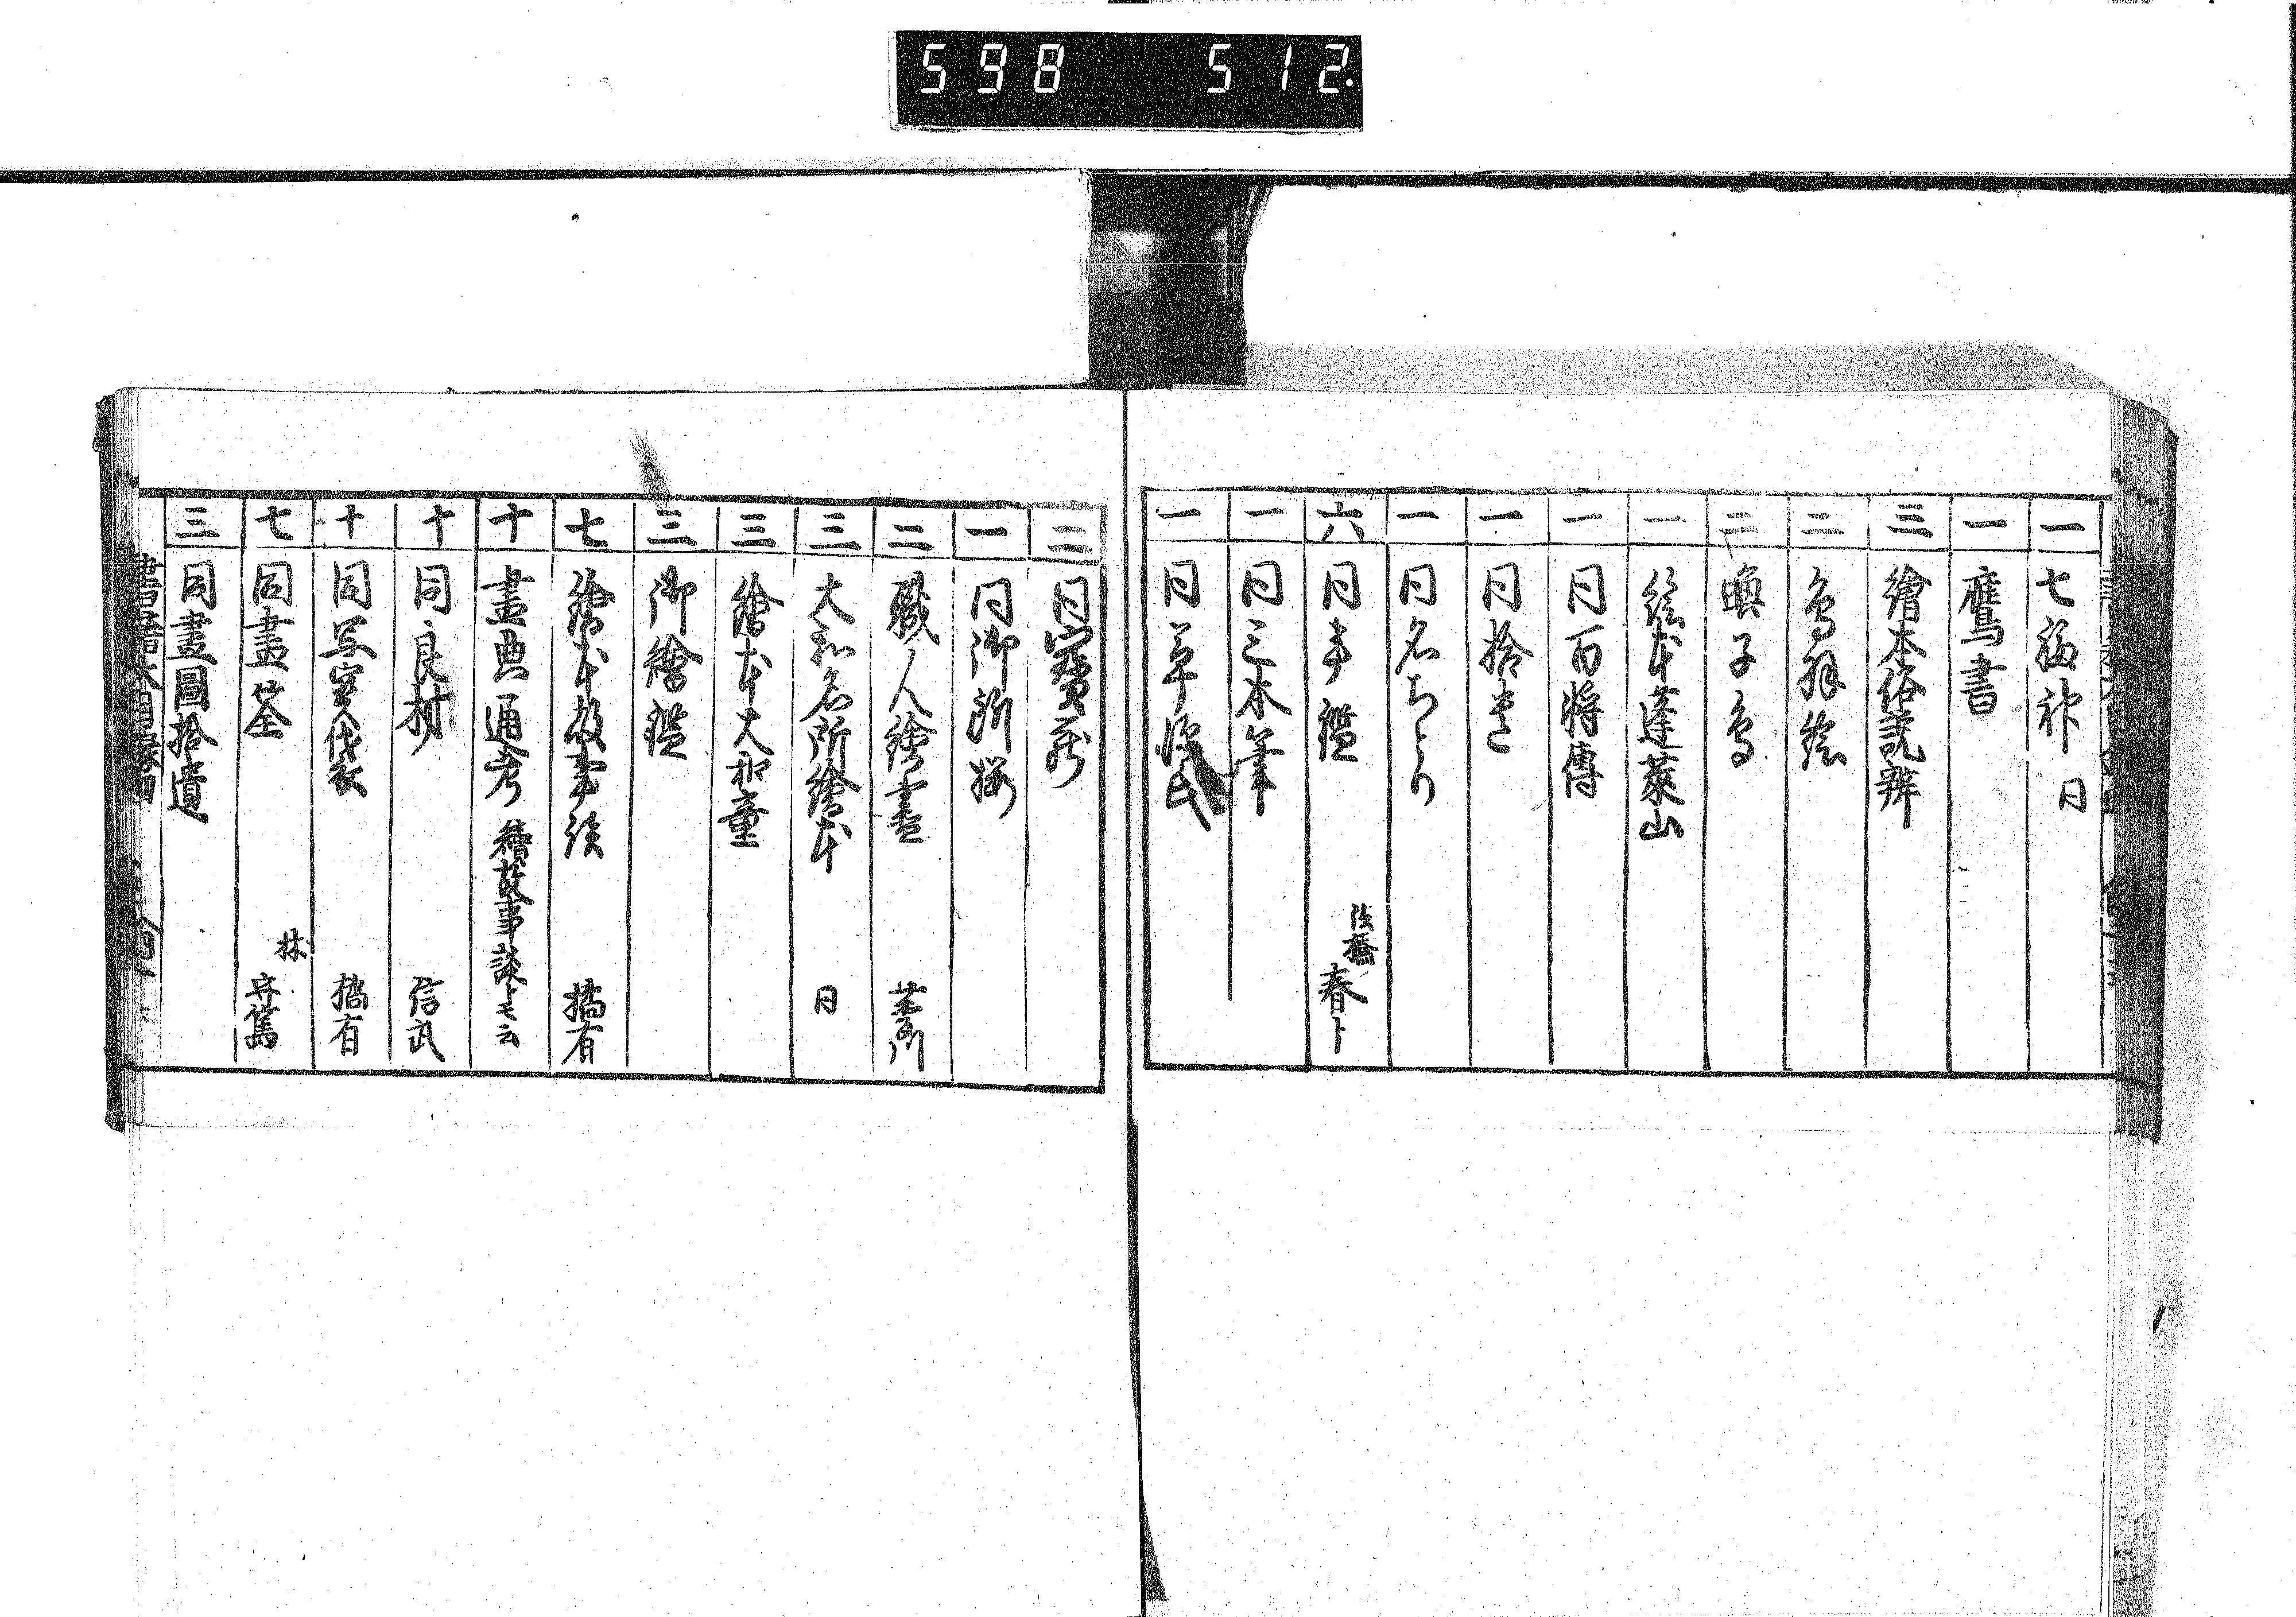 598 512.
一 七福神 同
一 鷹書
三 繪本俗説辨
二 鳥羽絵
二 喚子鳥
一 絵本蓬萊山
一 同百将傳
一 同拾
一 同名
六 同手鑑 法橋春卜
一 同三本筆
一 同草源氏
二 同寶蔵
一 同御所櫻
二 職人繪盡 菱川
三 大和名所繪本 同
三 繪本大和童
三 御繪鑑
七 繪本故事談 橘有
十 畫典通考 續故事談トモ云
十 同良材 信武
十 同写宝袋 橘有
七 同畫筌 林守篤
三 同畫圖拾遺